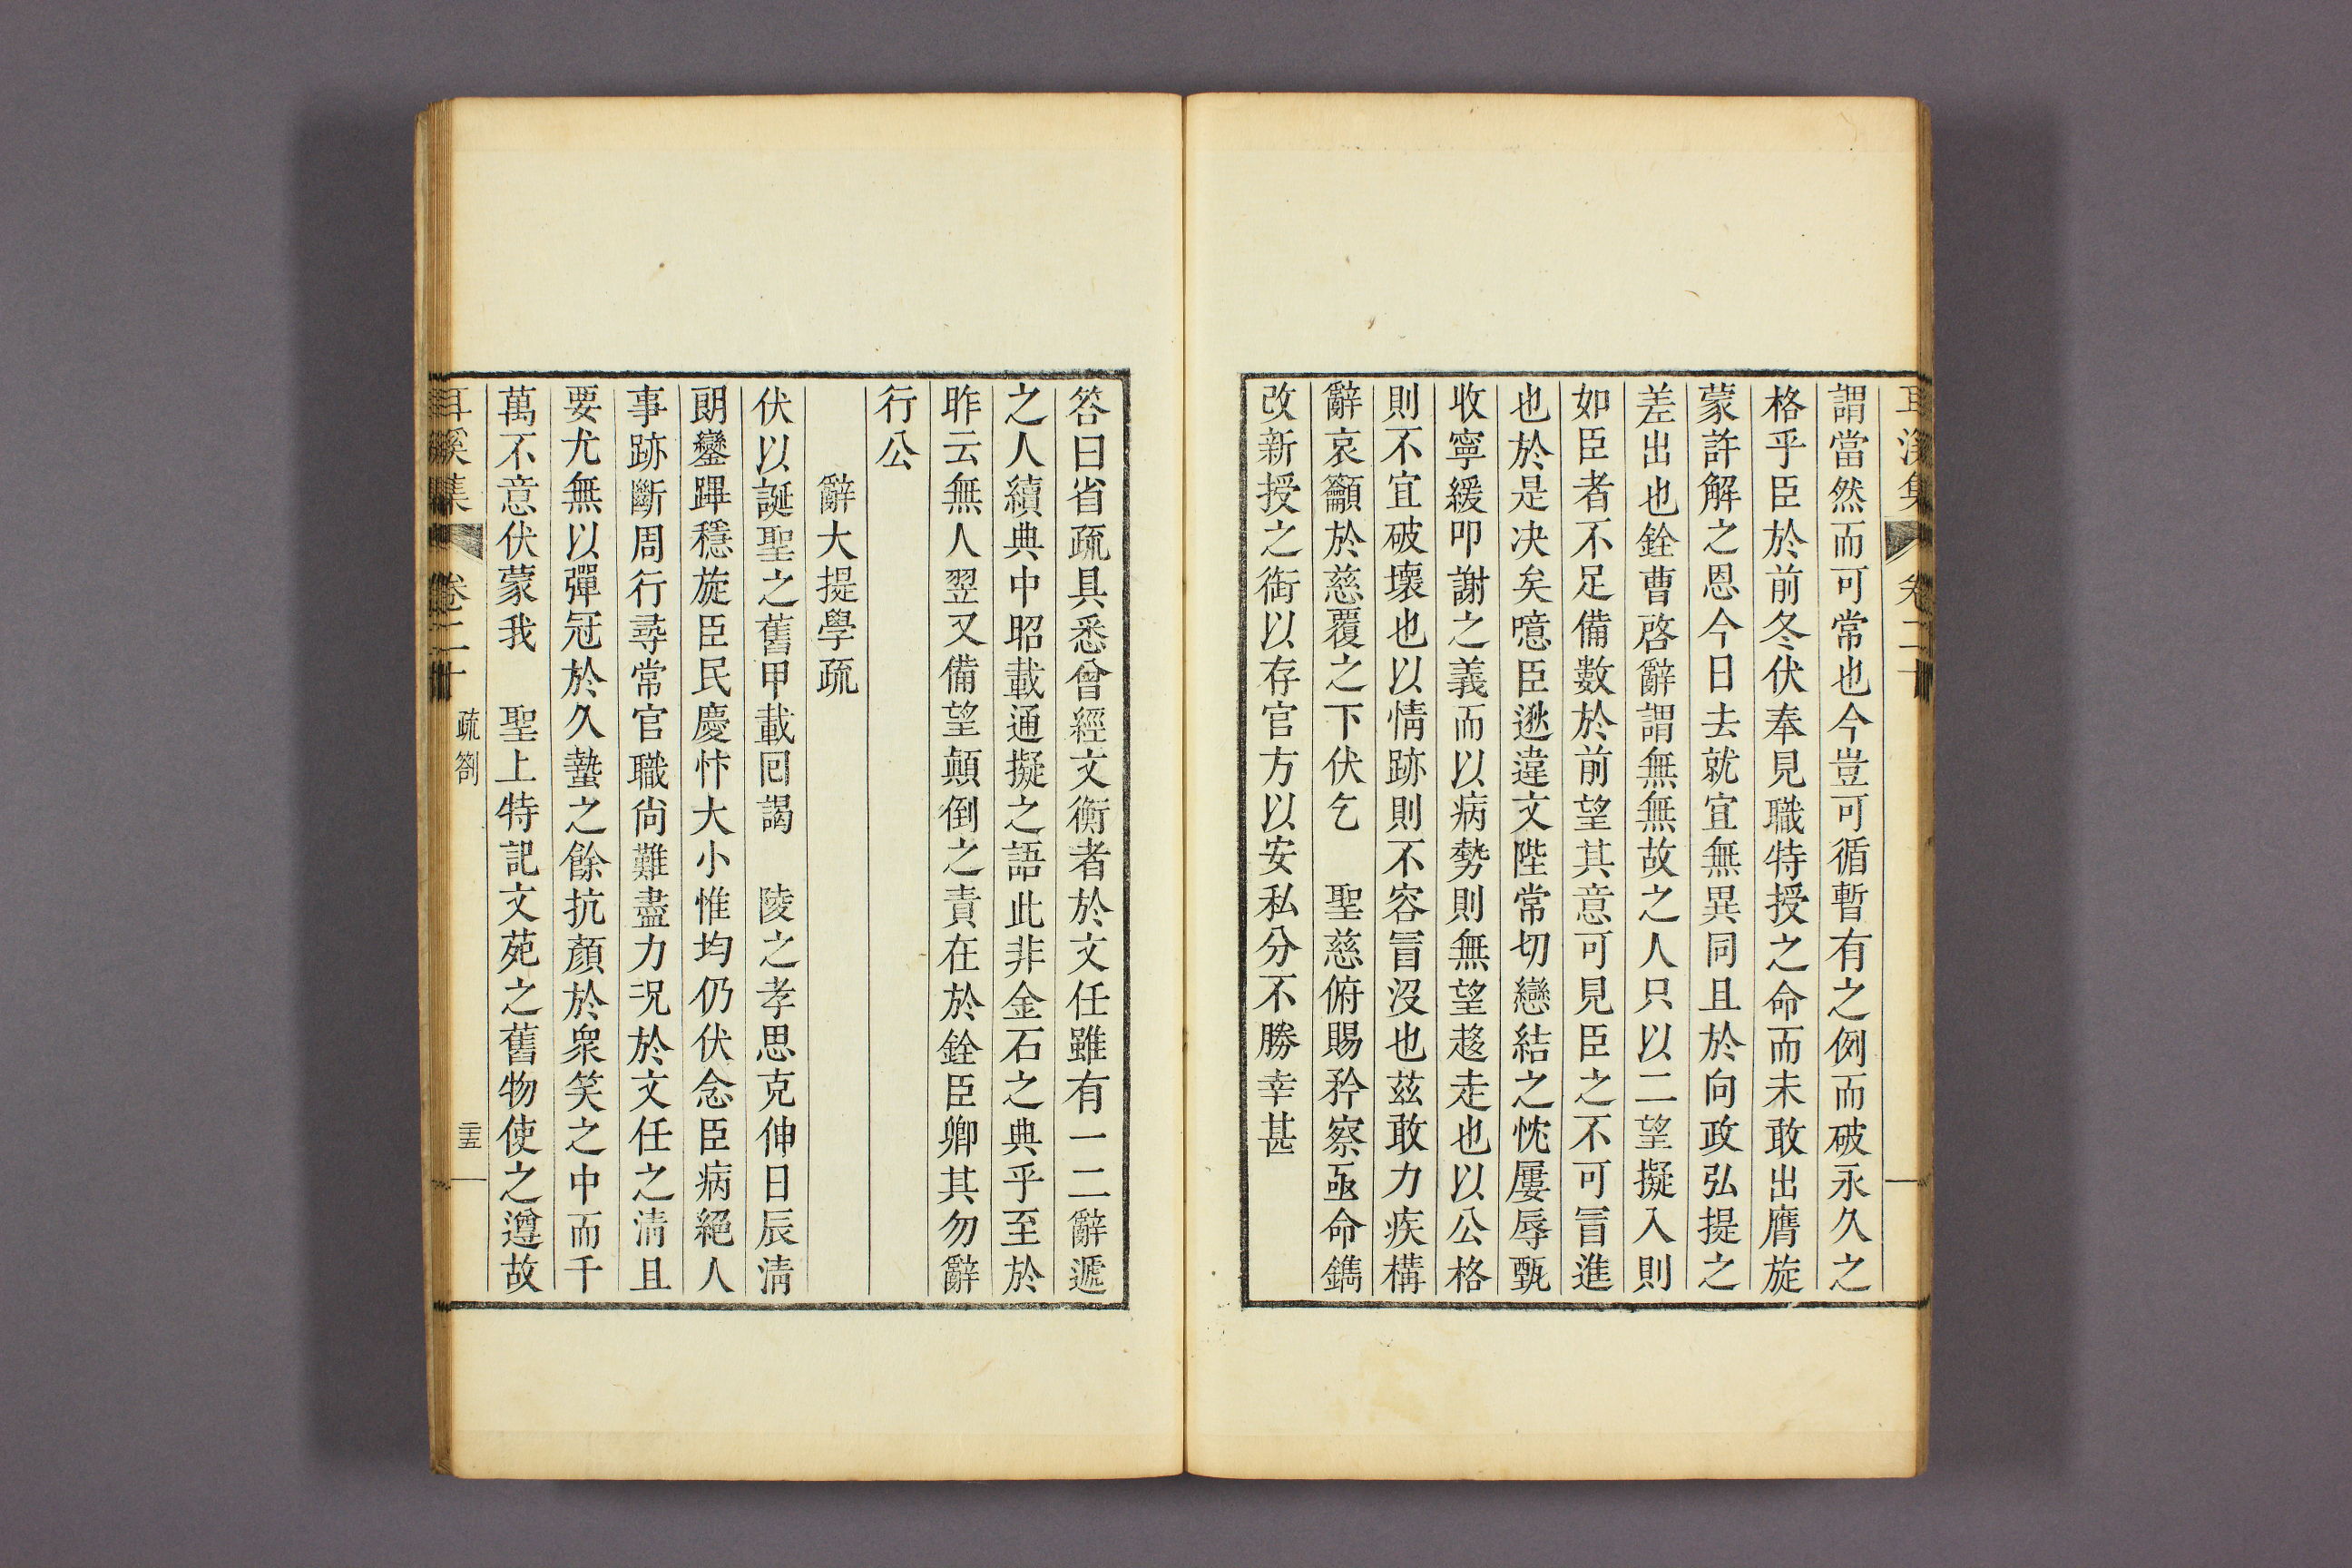 耳溪集 卷二十
謂當然而可常也今豈可循暫有之例而破永久之
格乎臣於前冬伏奉見職特授之命而未敢出膺旋
蒙許解之恩今日去就宜無異同且於向政弘提之
差出也銓曹啓辭謂無無故之人只以二望擬入則
如臣者不足備數於前望其意可見臣之不可冒進
也於是决矣噫臣逖違文陛常切戀結之忱屢辱甄
收寧緩叩謝之義而以病勢則無望趍走也以公格
則不宜破壞也以情跡則不容冒沒也茲敢力疾構
辭哀籲於慈覆之下伏乞 聖慈俯賜矜察亟命鐫
改新授之銜以存官方以安私分不勝幸甚
答曰省疏具悉曾經文衡者於文任雖有一二辭遞
之人續典中昭載通擬之語此非金石之典乎至於
昨云無人翌又備望顛倒之責在於銓臣卿其勿辭
行公
辭大提學疏
伏以誕聖之舊甲載囘謁 陵之孝思克伸日辰淸
朗鑾蹕穩旋臣民慶忭大小惟均仍伏念臣病絕人
事跡斷周行尋常官職尙難盡力况於文任之淸且
要尤無以彈冠於久蟄之餘抗顏於衆笑之中而千
萬不意伏蒙我 聖上特記文苑之舊物使之遵故
耳溪集 卷二十 疏箚 二十五